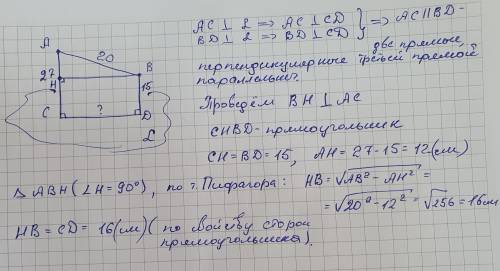 A
20
27
H
B
15
C
?
D
α
AC ⊥ α => AC ⊥ CD
BD ⊥ α => BD ⊥ CD } => AC || BD -
две прямые,
перпендикулярные третьей прямой
параллельны.
Проведём BH ⊥ AC
CHBD - прямоугольник
CH = BD = 15, AH = 27 - 15 = 12 (см)
△ ABH (∠H = 90°), по т. Пифагора: HB = √AB² - AH² =
= √20² - 12² = √256 = 16см
HB = CD = 16 (см) ( по свойству сторон
прямоугольника).